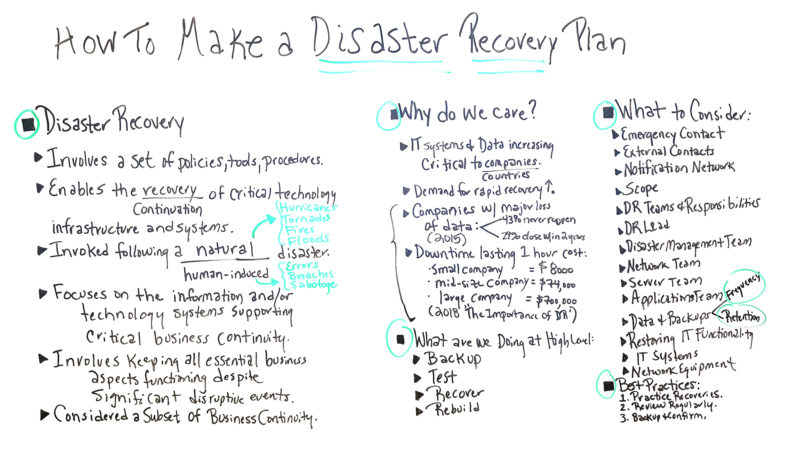 How To Make a Disaster Recovery Plan
Disaster Recovery
Involves a set of policies, tools, procedures.
Enables the recovery of critical technology
Continuation
infrastructure and systems.
Hurricanes
Tornados
Fires
Floods
Invoked following a natural disaster.
human-induced
Errors
Breaches
Sabotage
Focuses on the information and/or
technology systems supporting
Critical business continuity.
Involves keeping all essential business
aspects functioning despite
significant disruptive events.
Considered a Subset of Business Continuity.
Why do We care?
IT Systems & Data increasing
Critical to companies.
Countries
Demand for rapid recovery ↑.
Companies w/ major loss
of data:
(2015)
43% never reopen
29% close w/in 2 years
Downtime lasting 1 hour cost:
· Small company = $8000
· mid-size company = $74,000
· large company = $700,000
(2013 "The Importance of DR")
What are we Doing at High Level:
Backup
Test
Recover
Rebuild
What to Consider:
Emergency Contact
External Contacts
Notification Network
Scope
DR Teams & Responsibilities
DR Lead
Disaster Management Team
Network Team
Server Team
Applications Team
Data & Backups
Frequency
Retention
Restoring IT Functionality
IT Systems
Network Equipment
Best Practices:
1. Practice Recoveries.
2. Review Regularly.
3. Backup & Confirm.